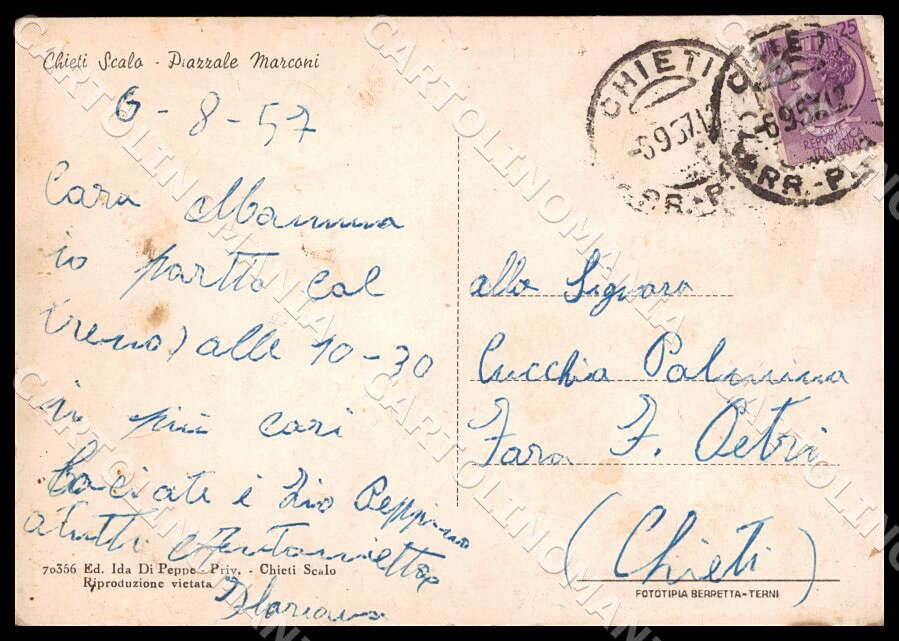 Chieti Scalo - Piazzale Marconi
6-8-57
Cara Mamma
io partto col
treno alle 10-30
i più cari
Baciate i Zio Peppino
atutti Antonietta
70356 Ed. Ida Di Peppe Priv. - Chieti Scalo
Riproduzione vietata
CHIETI
-6.9.57.12
ARR.-P.
CHIETI
-6.9.57.12
ARR.-P.
25
REPUBBLICA
ITALIANA
alla Signora
Cucchia Palmina
Fara F. Petri
(Chieti)
FOTOTIPIA BERPETTA-TERNI
CARTOLINOMANIA